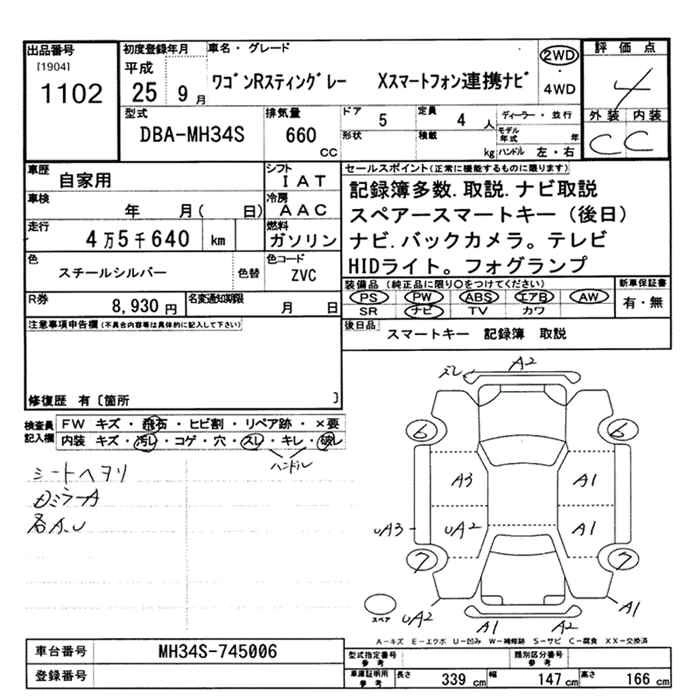 出品番号
[1904]
1102
初度登録年月
平成
25 9月
車名・グレード
ワゴンRスティングレー Xスマートフォン連携ナビ
2WD
4WD
評価点
4
外装 内装
C C
型式
DBA-MH34S
排気量
660
CC
ドア 5
定員 4 人
形状
積載 kg
ディーラー・並行
モデル年式 年
ハンドル 左・右
車歴
自家用
シフト
IAT
車検
年 月( 日)
冷房
AAC
走行
4万5千640 km
燃料
ガソリン
色
スチールシルバー
色替
色コード
ZVC
R券
8,930円
名変通知期限
月 日
セールスポイント(正常に機能するものに限ります)
記録簿多数.取説.ナビ取説
スペアースマートキー(後日)
ナビ.バックカメラ。テレビ
HIDライト。フォグランプ
装備品(純正品に限り○をつけてください)
PS PW ABS エアB AW
SR ナビ TV カワ
新車保証書
有・無
後日品
スマートキー 記録簿 取説
注意事項申告欄(不具合内容等は具体的に記入して下さい)
修復歴 有〔箇所 〕
検査員記入欄
FW キズ・飛石・ヒビ割・リペア跡・×要
内装 キズ・汚レ・コゲ・穴・スレ・キレ・破レ
ハンドル
シートヘタリ
各A.U
ズレ
A2
6
6
A3
A1
UA3
UA2
A1
7
7
スペア
UA2
A1
A2
A1
A-キズ E-エクボ U-凹み W-補修跡 S-サビ C-腐食 XX-交換済
車台番号
MH34S-745006
登録番号
型式指定番号
参考
類別区分番号
参考
車庫証明用
参考
長さ 339 cm
幅 147 cm
高さ 166 cm